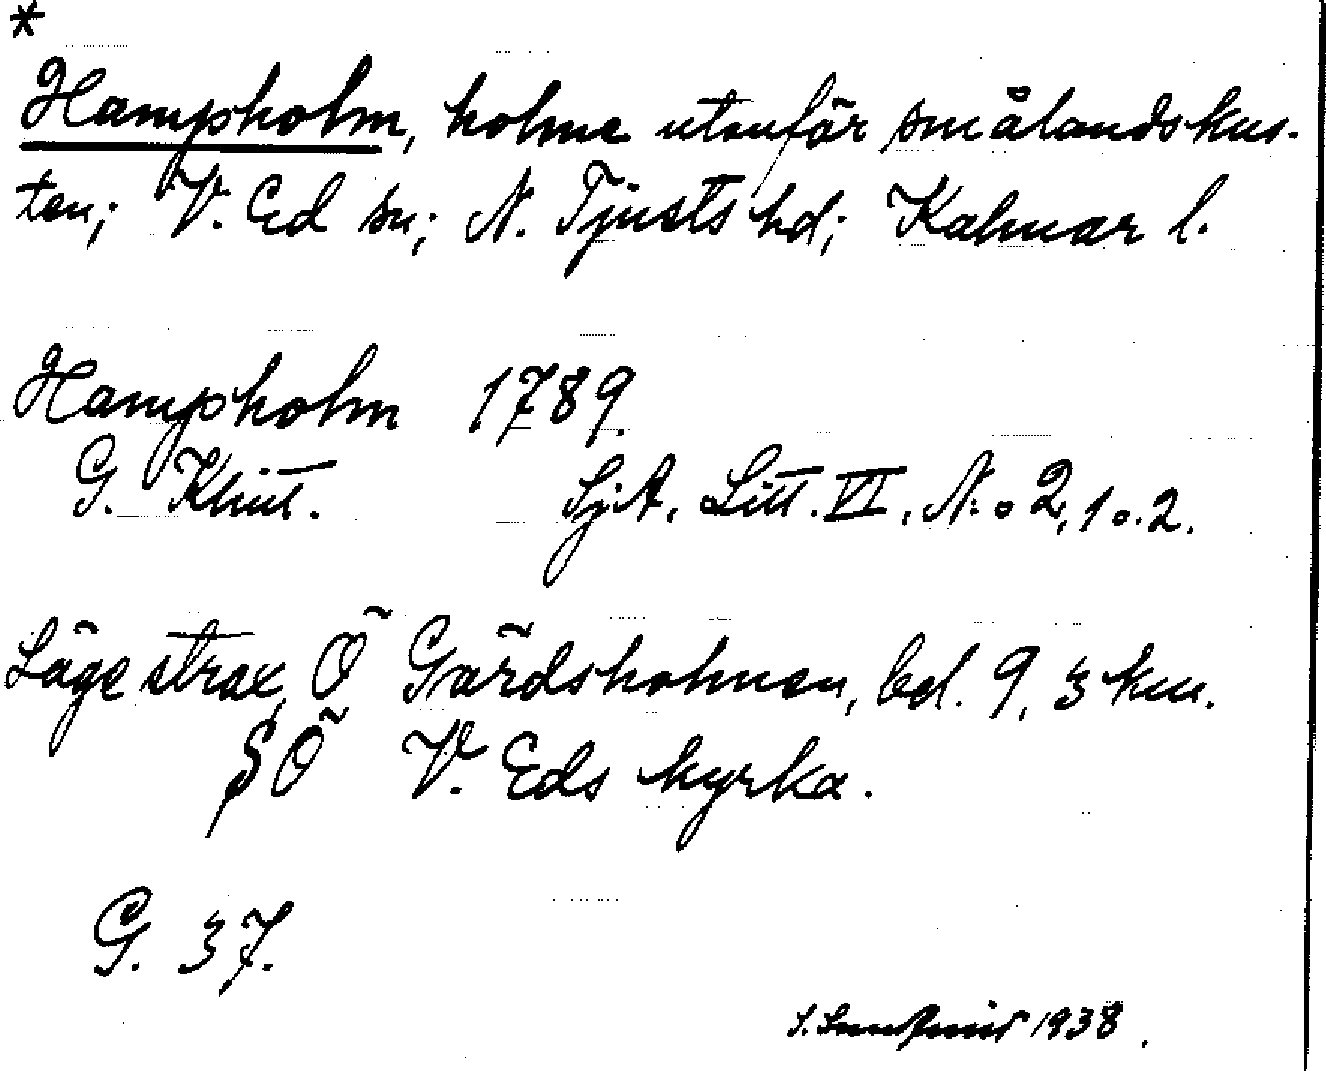 *
Hampholm, holme utanför smålandskus-
ten; V. Ed sn; N. Tjusts hd; Kalmar l.
Hampholm 1789.
G. Klint. SjA. Litt. VI, N:o 2, 1 o. 2.
Läge strax Ö Gärdsholmen, bel. 9,3 km.
SÖ V. Eds kyrka.
G. 37.
1938.